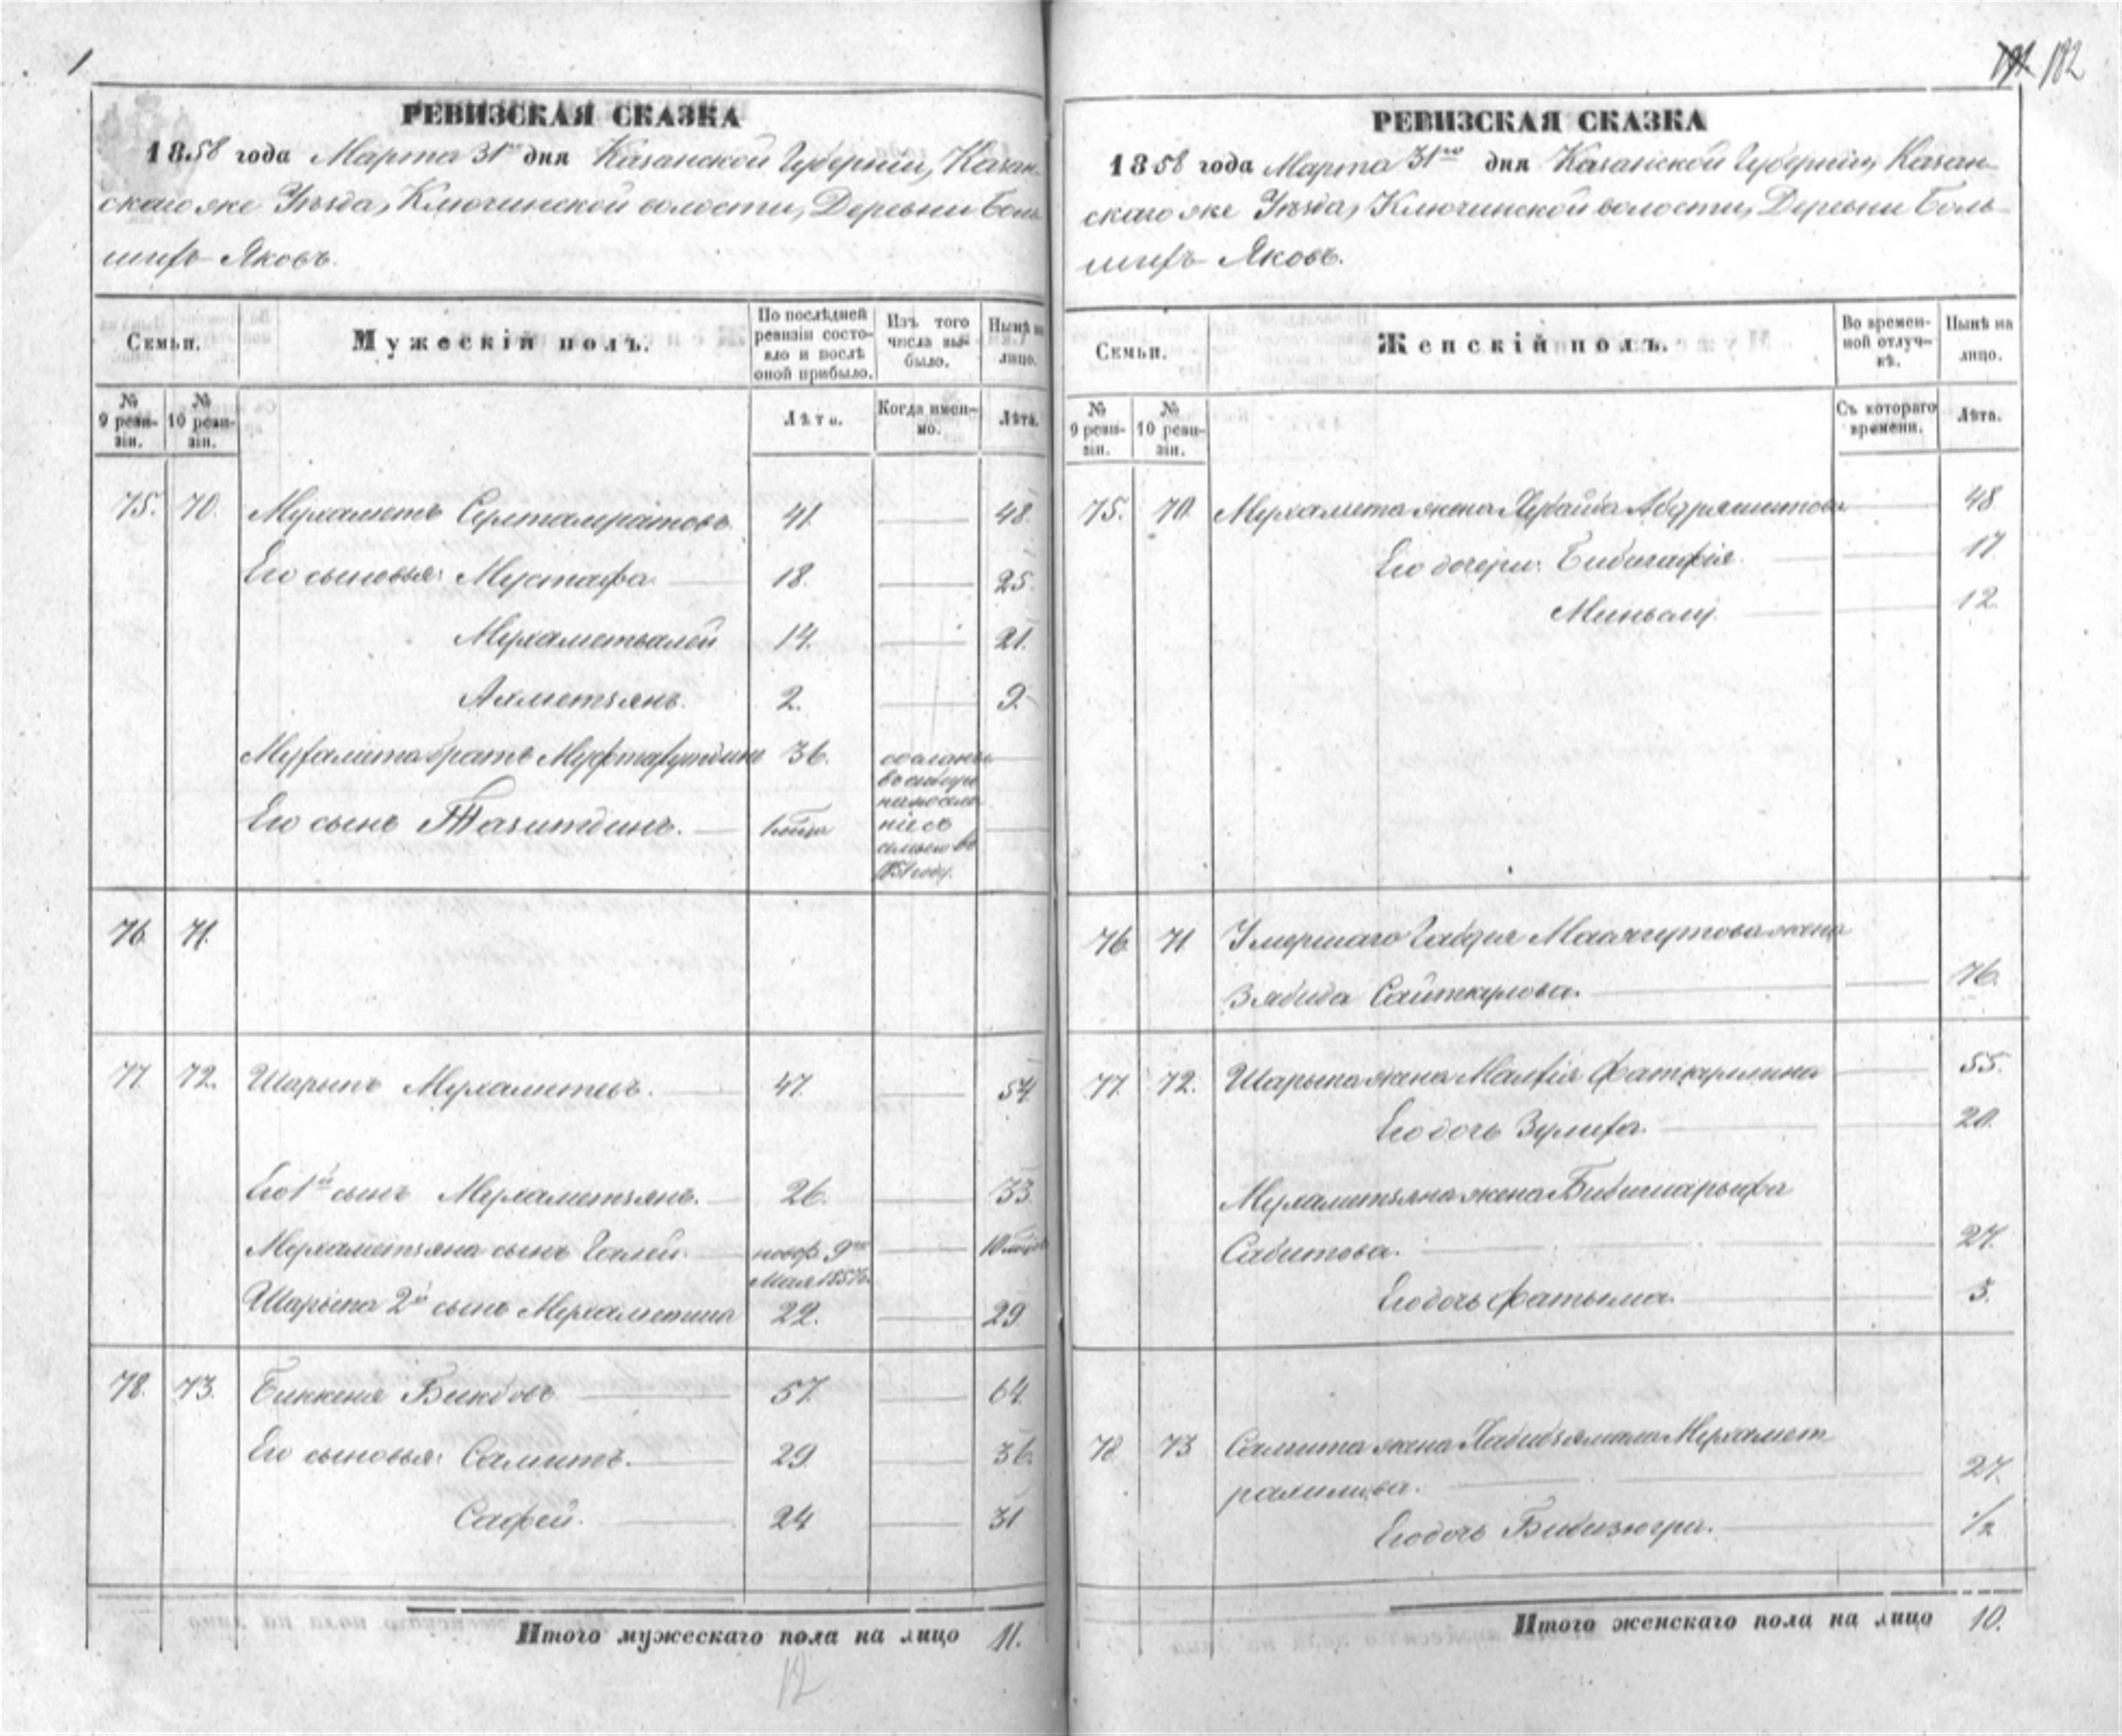 1
РЕВИЗСКАЯ СКАЗКА
1858 года Марта 31го дня Казанской Губерніи, Казан-
скаго же Уѣзда, Ключинской волости, Деревни Боль-
шихъ Яковъ.
Семьи.
Мужескій полъ.
По послѣдней ревизіи состояло и послѣ оной прибыло.
Изъ того числа выбыло.
Нынѣ на лицо.
№ 9 ревизіи.
№ 10 ревизіи.
Лѣта.
Когда именно.
Лѣта.
75. 70. Мухаметъ Султамратовъ 41. 48.
Его сыновья: Мустафа 18. 25.
Мухаметвалей 14. 21.
Ахметзянъ. 2. 9.
Мухамета братъ Муфтахутдинъ 36. сосланы
въ сибирь
на посе
ніе съ
семьею въ
1851 году.
Его сынъ Тазитдинъ.
76. 71.
77. 72. Шарыпъ Мухаметевъ. 47. 54.
Его 1й сынъ Мухаметзянъ. 26. 33.
Мухаметзяна сынъ Галей. новор. 9го
Мая 1857 г.
Шарыпа 2й сынъ Мухаметша 22. 29.
78. 73. Биккеня Бикбовъ 57. 64.
Его сыновья: Самитъ. 29. 36.
Сафей. 24 31
Итого мужескаго пола на лицо 11.
12
182
РЕВИЗСКАЯ СКАЗКА
1858 года Марта 31го дня Казанской Губерніи, Казан-
скаго же Уѣзда, Ключинской волости, Деревни Боль-
шихъ Яковъ.
Семьи.
Женскій полъ.
Во временной отлучкѣ.
Нынѣ на лицо.
№ 9 ревизіи.
№ 10 ревизіи.
Съ котораго времени.
Лѣта.
75. 70. Мухамета жена Хубайба Абдряшитова 48
Его дочери: Бибигафія 17
12.
76. 71 Умершаго Габдея Масягутова жена
Зябида Сайткулова. 76.
77. 72. Шарыпа жена Фаткуллина 55.
Его дочь Зулиха. 20.
Мухаметзяна жена Бибишарыфа
Сабитова. 27.
Его дочь Фатыма. 3.
78 73 Самита жена Хабибзямала Мухамет-
рахимова. 27.
Его дочь Бибизюгра. 1/2
Итого женскаго пола на лицо 10.